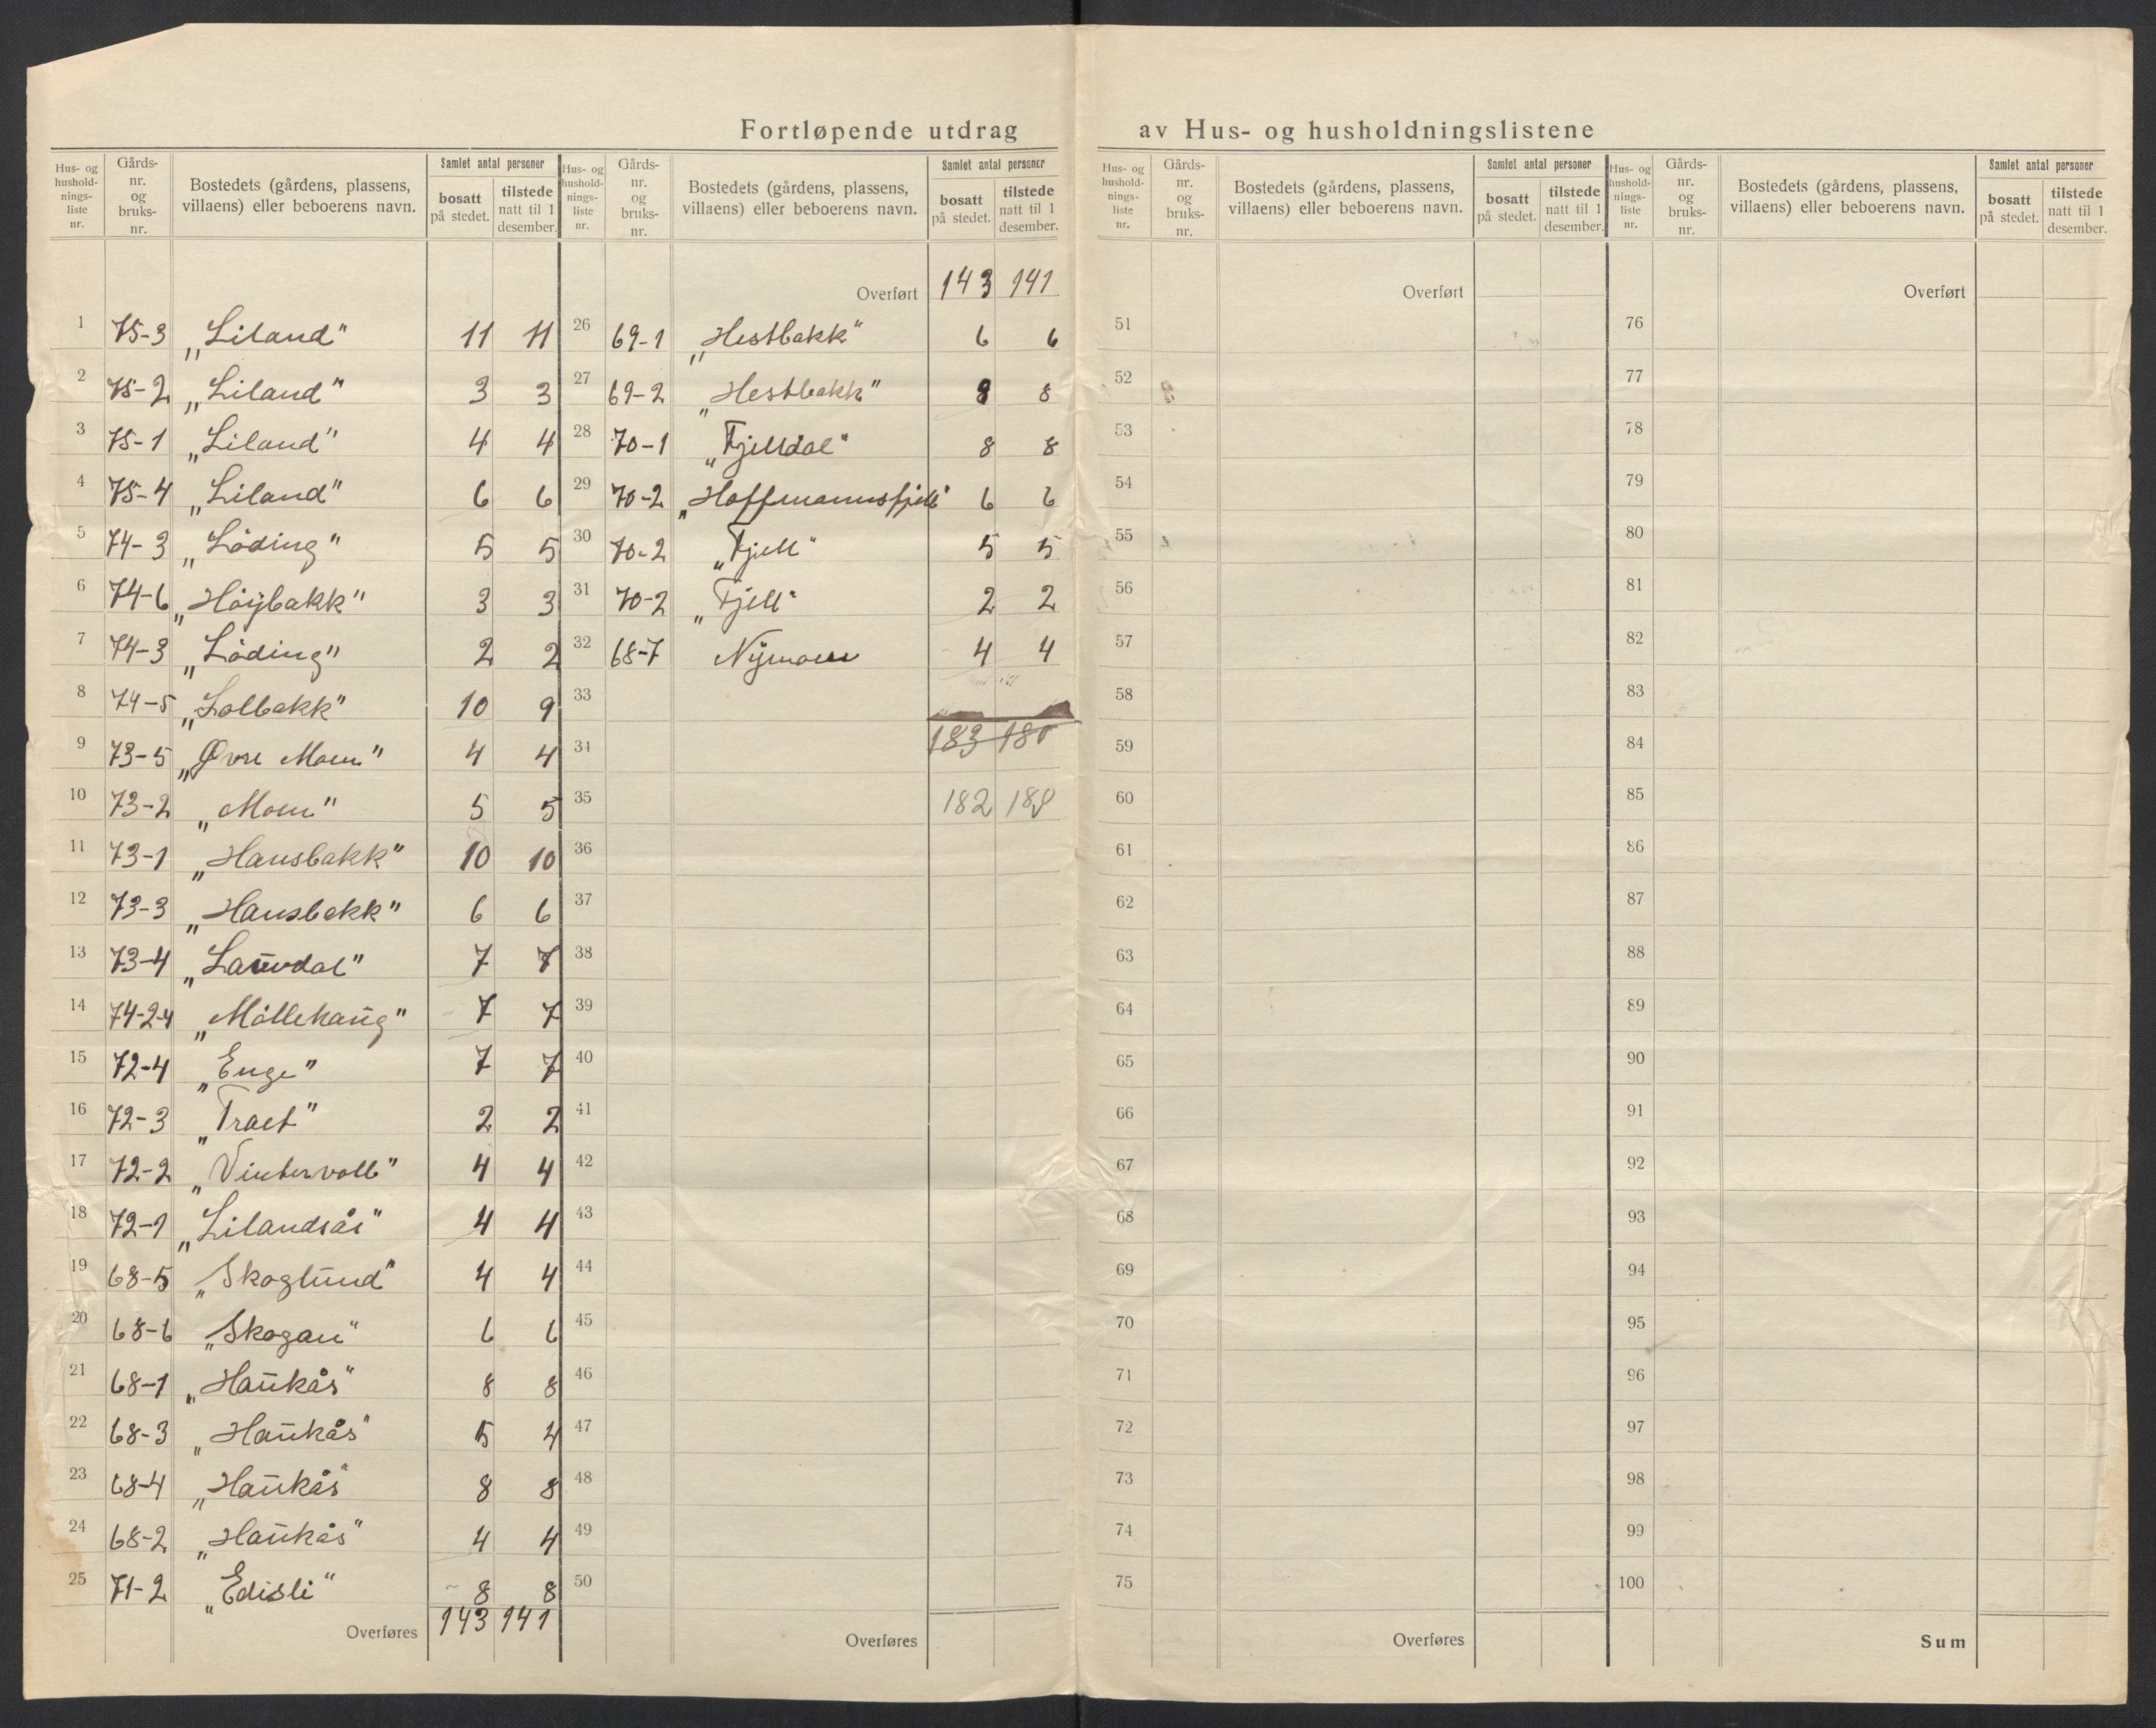 Fortløpende utdrag av Hus- og husholdningslistene
Hus- og hushold-nings-liste nr. Gårds-nr. og bruks-nr. Bostedets (gårdens, plassens, villaens) eller beboerens navn. Samlet antal personer bosatt på stedet. tilstede natt til 1 desember.
1 75-3 „Liland" 11 11
2 75-2 „Liland" 3 3
3 75-1 „Liland" 4 4
4 75-4 „Liland" 6 6
5 74-3 „Löding" 5 5
6 74-6 „Höÿbakk" 3 3
7 74-3 „Löding" 2 2
8 74-5 „Solbakk" 10 9
9 73-5 „Øvre Moen" 4 4
10 73-2 „Moen" 5 5
11 73-1 „Hansbakk" 10 10
12 73-3 „Hansbakk" 6 6
13 73-4 „Lauvdal" 7 7
14 74-2-4 „Möllehaug" 7 7
15 72-4 „Enge" 7 7
16 72-3 „Traet" 2 2
17 72-2 „Vintervoll" 4 4
18 72-1 „Lilandsås" 4 4
19 68-5 „Skoglund" 4 4
20 68-6 „Skogan" 6 6
21 68-1 „Haukås" 8 8
22 68-3 „Haukås" 5 4
23 68-4 „Haukås" 8 8
24 68-2 „Haukås" 4 4
25 71-2 „Edisli" 8 8
Overføres 143 141
Hus- og hushold-nings-liste nr. Gårds-nr. og bruks-nr. Bostedets (gårdens, plassens, villaens) eller beboerens navn. Samlet antal personer bosatt på stedet. tilstede natt til 1 desember.
Overført 143 141
26 69-1 „Hestbakk" 6 6
27 69-2 „Hestbakk" 8 8
28 70-1 „Fjelldal" 8 8
29 70-2 „Hoffmannsfjell" 6 6
30 70-2 „Fjell" 5 5
31 70-2 „Fjell" 2 2
32 68-7 Nÿmoen 4 4
33
34 183 180
35 182
36
37
38
39
40
41
42
43
44
45
46
47
48
49
50
Overføres
Hus- og hushold-nings-liste nr. Gårds-nr. og bruks-nr. Bostedets (gårdens, plassens, villaens) eller beboerens navn. Samlet antal personer bosatt på stedet. tilstede natt til 1 desember.
Overført
51
52
53
54
55
56
57
58
59
60
61
62
63
64
65
66
67
68
69
70
71
72
73
74
75
Overføres
Hus- og hushold-nings-liste nr. Gårds-nr. og bruks-nr. Bostedets (gårdens, plassens, villaens) eller beboerens navn. Samlet antal personer bosatt på stedet. tilstede natt til 1 desember.
Overført
76
77
78
79
80
81
82
83
84
85
86
87
88
89
90
91
92
93
94
95
96
97
98
99
100
Sum